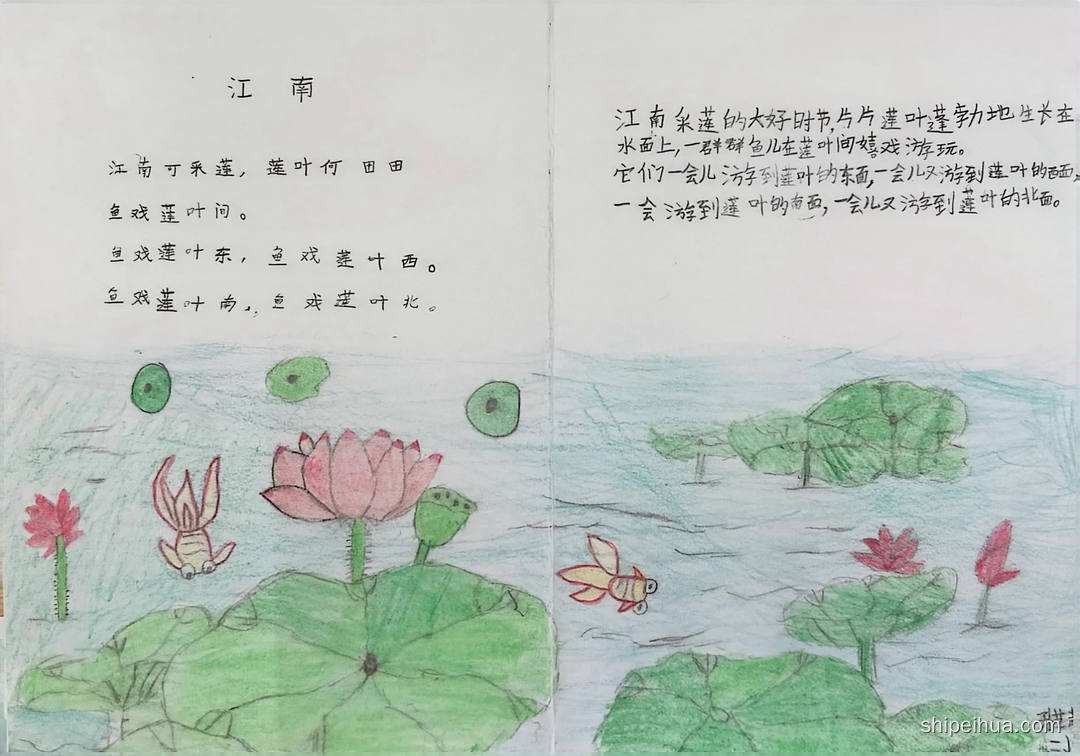 江 南
江南可采莲，莲叶何田田
鱼戏莲叶间。
鱼戏莲叶东，鱼戏莲叶西。
鱼戏莲叶南，鱼戏莲叶北。
江南采莲的大好时节，片片莲叶蓬勃地生长在
水面上，一群群鱼儿在莲叶间嬉戏游玩。
它们一会儿游到莲叶的东面，一会儿又游到莲叶的西面，
一会游到莲叶的南面，一会儿又游到莲叶的北面。
shipeihua.com